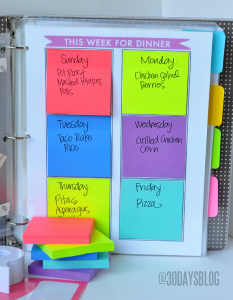 THIS WEEK FOR DINNER
Sunday
Pot Roast
Mashed Potatoes
Rolls
Monday
Chicken Salad
Berries
Tuesday
Taco Bake
Rice
Wednesday
Grilled Chicken
Corn
Thursday
Pitas
Asparagus
Friday
Pizza
@30DAYSBLOG